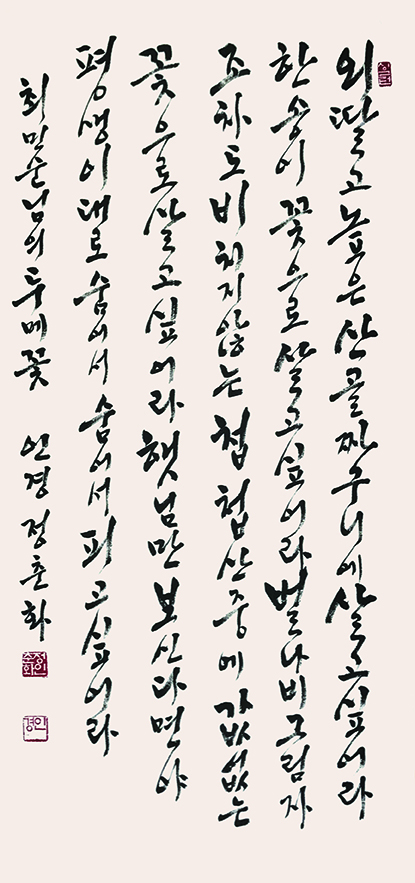 외딸고 높은 산 골짜구니에 살고싶어라
한 송이 꽃으로 살고싶어라 벌 나비 그림자
조차도 비치지않는 첩첩산중에 값없는
꽃으로 살고싶어라 햇님만 보신다면야
평생 이대로 숨어서 숨어서 피고싶어라
최민순님의 두메꽃 인경 정춘화